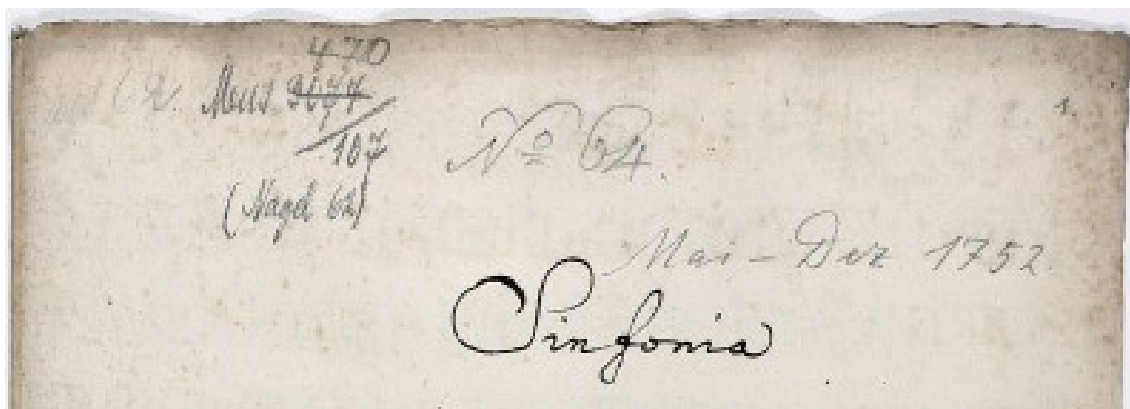 470
Mus. 3077
107
(Nagel 62)
No 64.
1.
Mai – Dez 1752.
Sinfonia